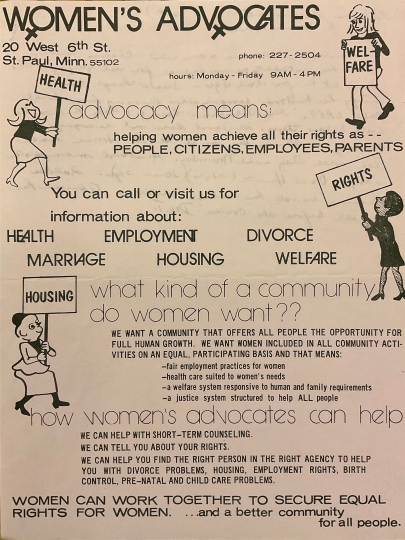 WOMEN'S ADVOCATES
20 West 6th St.
St. Paul, Minn. 55102
phone: 227-2504
hours: Monday - Friday 9AM - 4PM
WEL-
FARE
HEALTH
advocacy means:
helping women achieve all their rights as --
PEOPLE, CITIZENS, EMPLOYEES, PARENTS
RIGHTS
You can call or visit us for
information about:
HEALTH EMPLOYMENT DIVORCE
MARRIAGE HOUSING WELFARE
HOUSING
what kind of a community
do women want??
WE WANT A COMMUNITY THAT OFFERS ALL PEOPLE THE OPPORTUNITY FOR
FULL HUMAN GROWTH. WE WANT WOMEN INCLUDED IN ALL COMMUNITY ACTI-
VITIES ON AN EQUAL, PARTICIPATING BASIS AND THAT MEANS:
-fair employment practices for women
-health care suited to women's needs
-a welfare system responsive to human and family requirements
-a justice system structured to help ALL people
how women's advocates can help
WE CAN HELP WITH SHORT-TERM COUNSELING.
WE CAN TELL YOU ABOUT YOUR RIGHTS.
WE CAN HELP YOU FIND THE RIGHT PERSON IN THE RIGHT AGENCY TO HELP
YOU WITH DIVORCE PROBLEMS, HOUSING, EMPLOYMENT RIGHTS, BIRTH
CONTROL, PRE-NATAL AND CHILD CARE PROBLEMS.
WOMEN CAN WORK TOGETHER TO SECURE EQUAL
RIGHTS FOR WOMEN. ...and a better community
for all people.